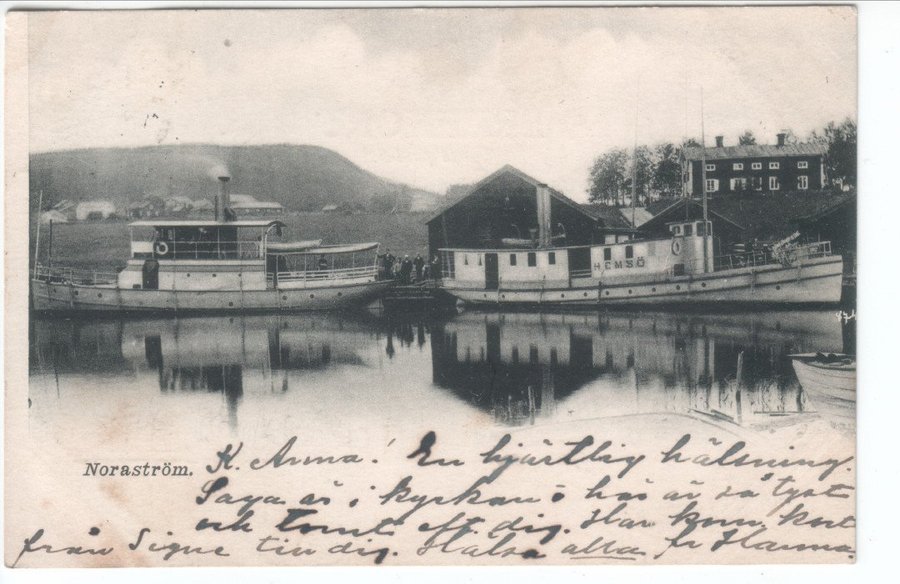 HEMSÖ
Noraström.
K. Anna! En hjärtlig hälsning.
Saga är i kyrkan o här är så tyst
och tomt eft dig. Har kom kort
från Signe till dig. Hälsa alla fr Hanna